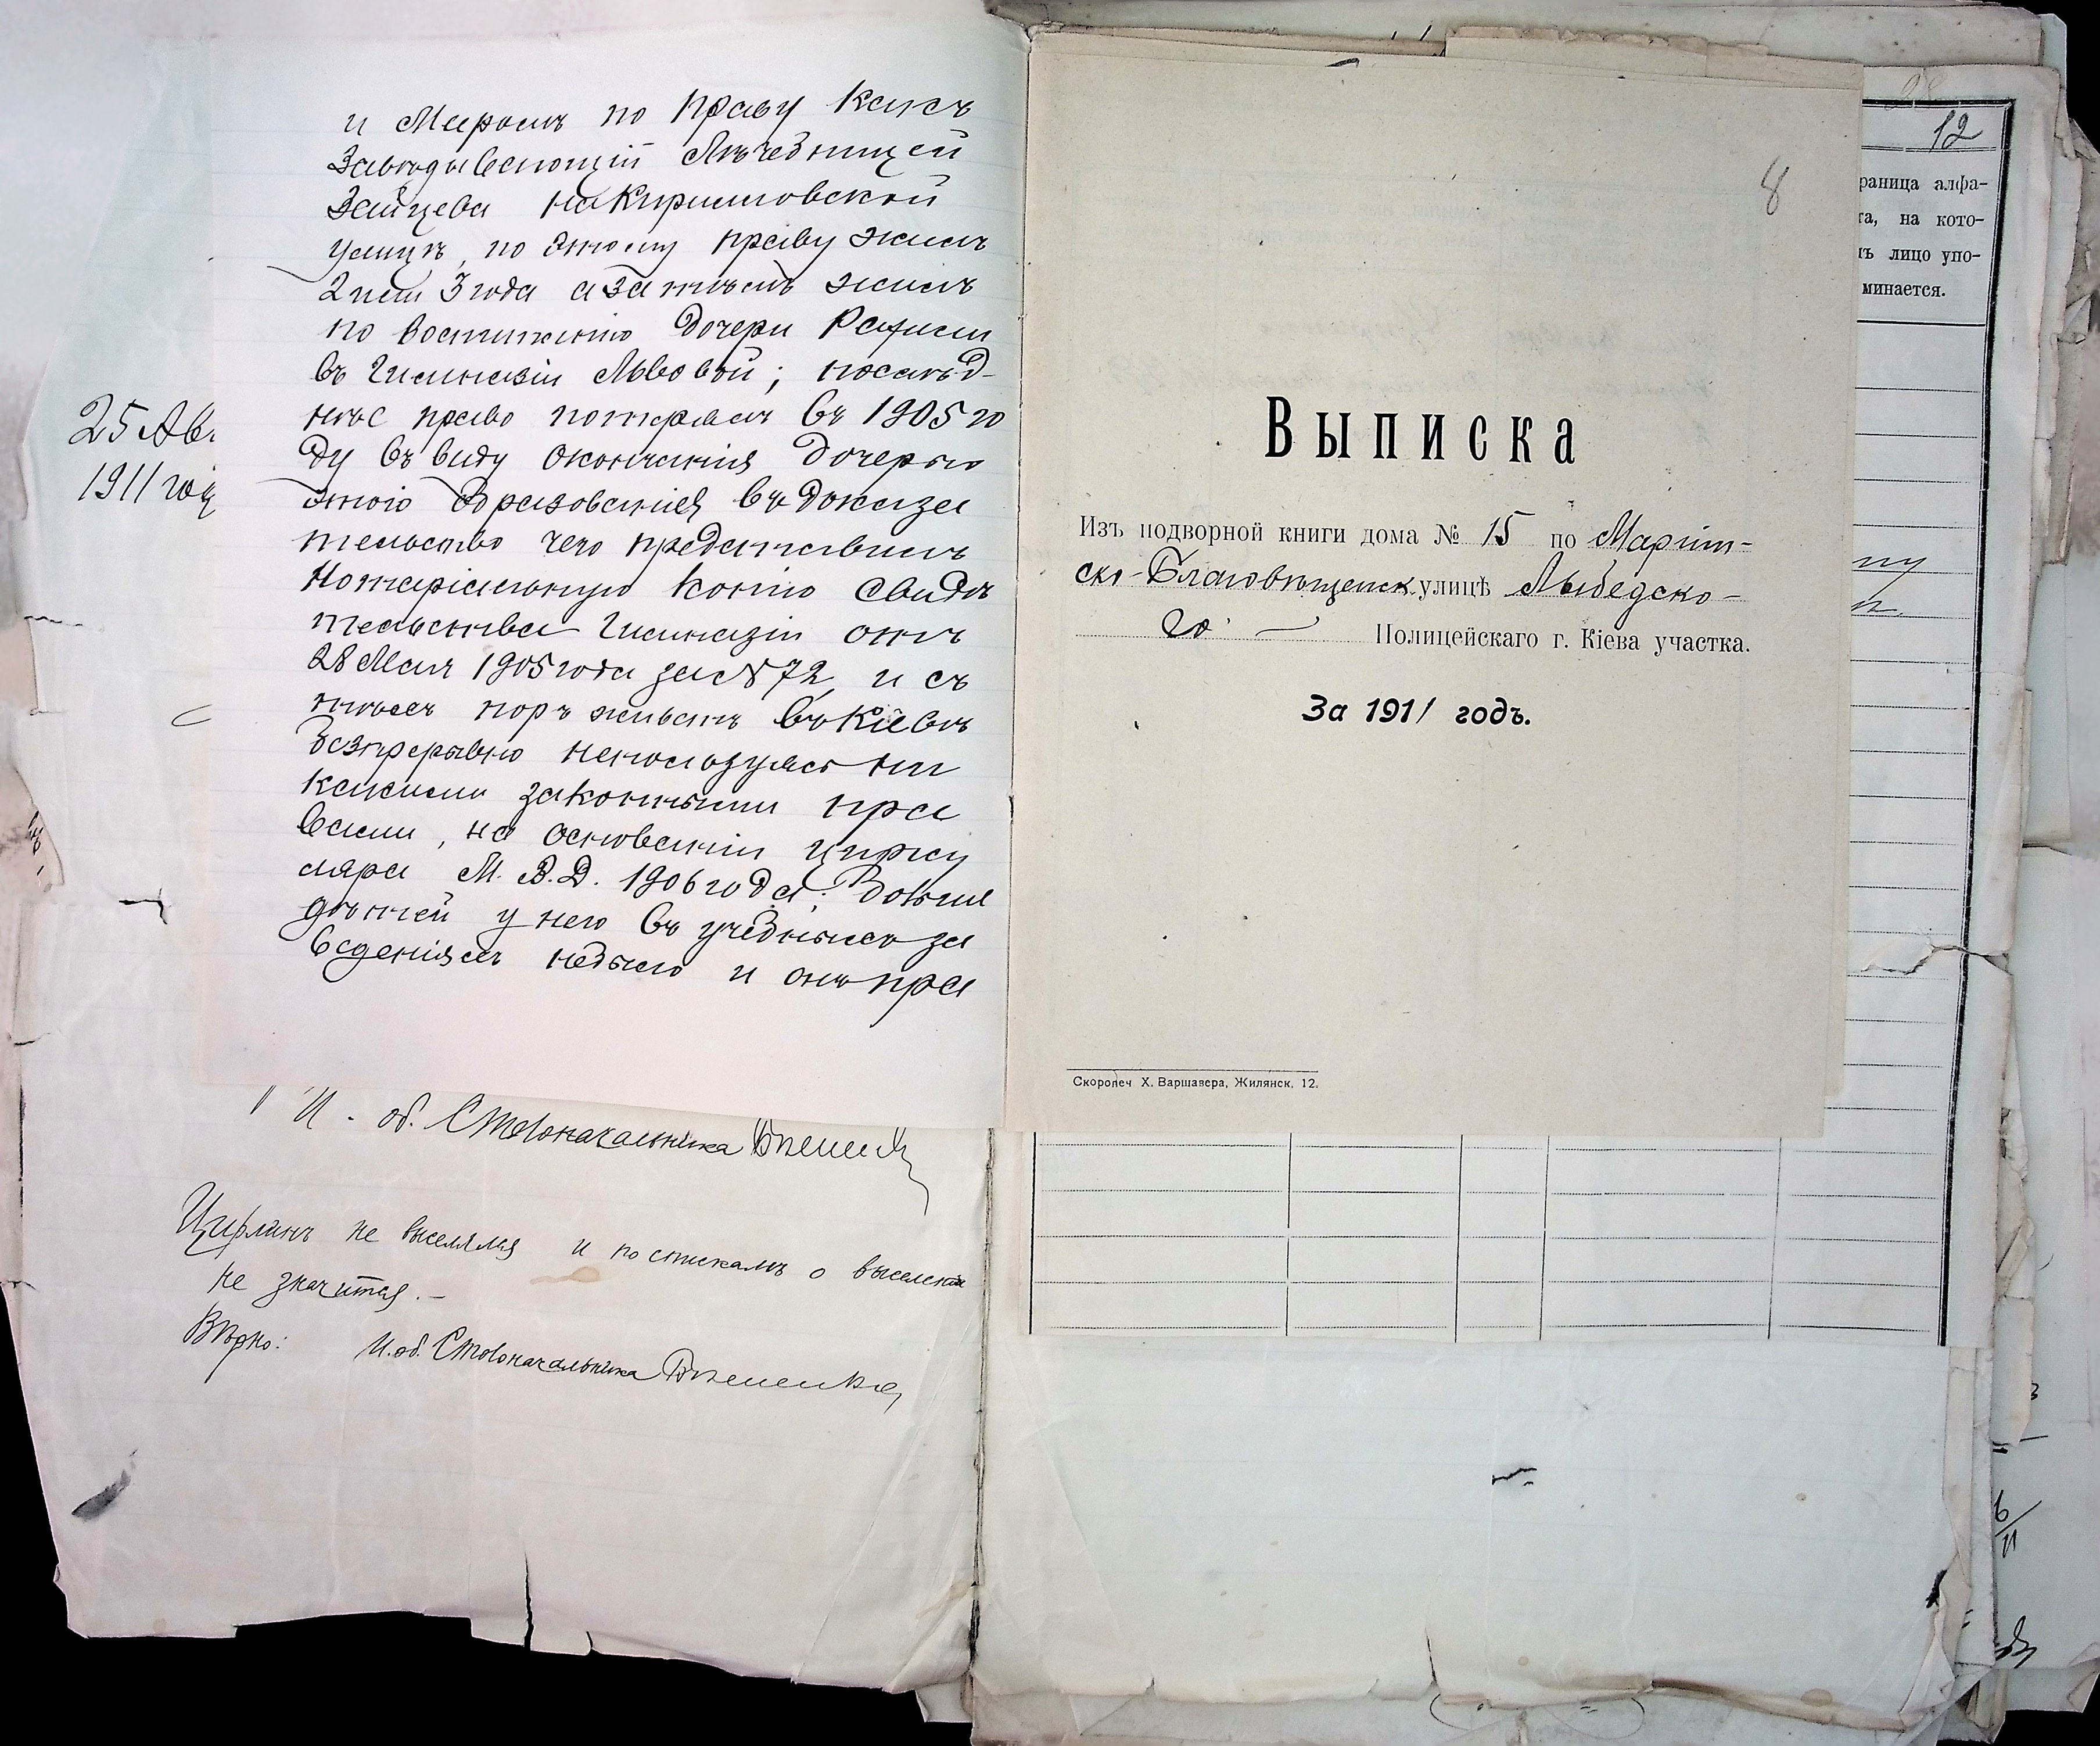 и Миромъ по праву какъ
Завѣдывающій Лѣчебницей
Зайцева на Кирилловской
улицѣ, по этому праву жилъ
2 или 3 года а затѣмъ жилъ
по воспитанію дочери Рахили
въ Гимназіи Львовой; послѣд-
нѣе право потерялъ въ 1905 го
ду въ виду окончанія дочерью
этого образованія въ доказа
тельство чего представилъ
Нотаріальную копію свидѣ
тельства Гимназіи отъ
28 Мая 1905 года за № 72, и съ
тѣхъ поръ живетъ въ Кіевѣ
безпрерывно непользуясь ни
какими законными пра
вами, на основаніи цирку
ляра М. В. Д. 1906 года;
дѣтей у него въ учебныхъ за
веденіяхъ небыло и онъ пра
25 Ав
1911 год
И. об. Столоначальника
Цирлинъ не выселялся и по спискамъ о выселеніи
не значится. —
Вѣрно: И. об. Столоначальника
8
Выписка
Изъ подворной книги дома № 15 по Маріин-
ско-Благовѣщенск. улицѣ Лыбедско-
го Полицейскаго г. Кіева участка.
За 1911 годъ.
Скоропеч Х. Варшавера, Жилянск. 12.
12
раница алфа-
та, на кото-
лицо упо-
минается.